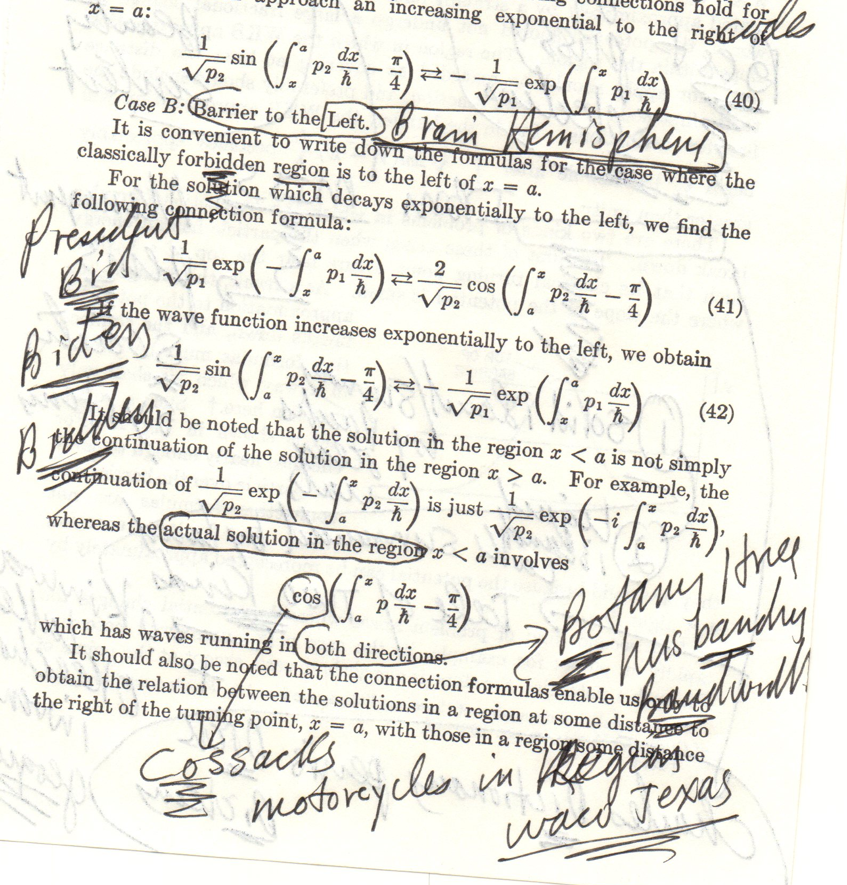 connections hold for
approach an increasing exponential to the right of
x = a:
1/√p₂ sin (∫ₓᵃ p₂ dx/ħ − π/4) ⇄ − 1/√p₁ exp (∫ₐˣ p₁ dx/ħ) (40)
Case B: Barrier to the Left. Brain Hemisphere
It is convenient to write down the formulas for the case where the
classically forbidden region is to the left of x = a.
For the solution which decays exponentially to the left, we find the
following connection formula:
President
Bid
1/√p₁ exp (− ∫ₓᵃ p₁ dx/ħ) ⇄ 2/√p₂ cos (∫ₐˣ p₂ dx/ħ − π/4) (41)
If the wave function increases exponentially to the left, we obtain
Biden
1/√p₂ sin (∫ₐˣ p₂ dx/ħ − π/4) ⇄ − 1/√p₁ exp (∫ₓᵃ p₁ dx/ħ) (42)
It should be noted that the solution in the region x < a is not simply
the continuation of the solution in the region x > a. For example, the
continuation of 1/√p₂ exp (− ∫ₐˣ p₂ dx/ħ) is just 1/√p₂ exp (−i ∫ₐˣ p₂ dx/ħ),
whereas the actual solution in the region x < a involves
cos (∫ₐˣ p dx/ħ − π/4)
Botany tree
husbandry
bandwidth
which has waves running in both directions.
It should also be noted that the connection formulas enable us only to
obtain the relation between the solutions in a region at some distance to
the right of the turning point, x = a, with those in a region some distance
Cossacks
motorcycles in
Waco Texas